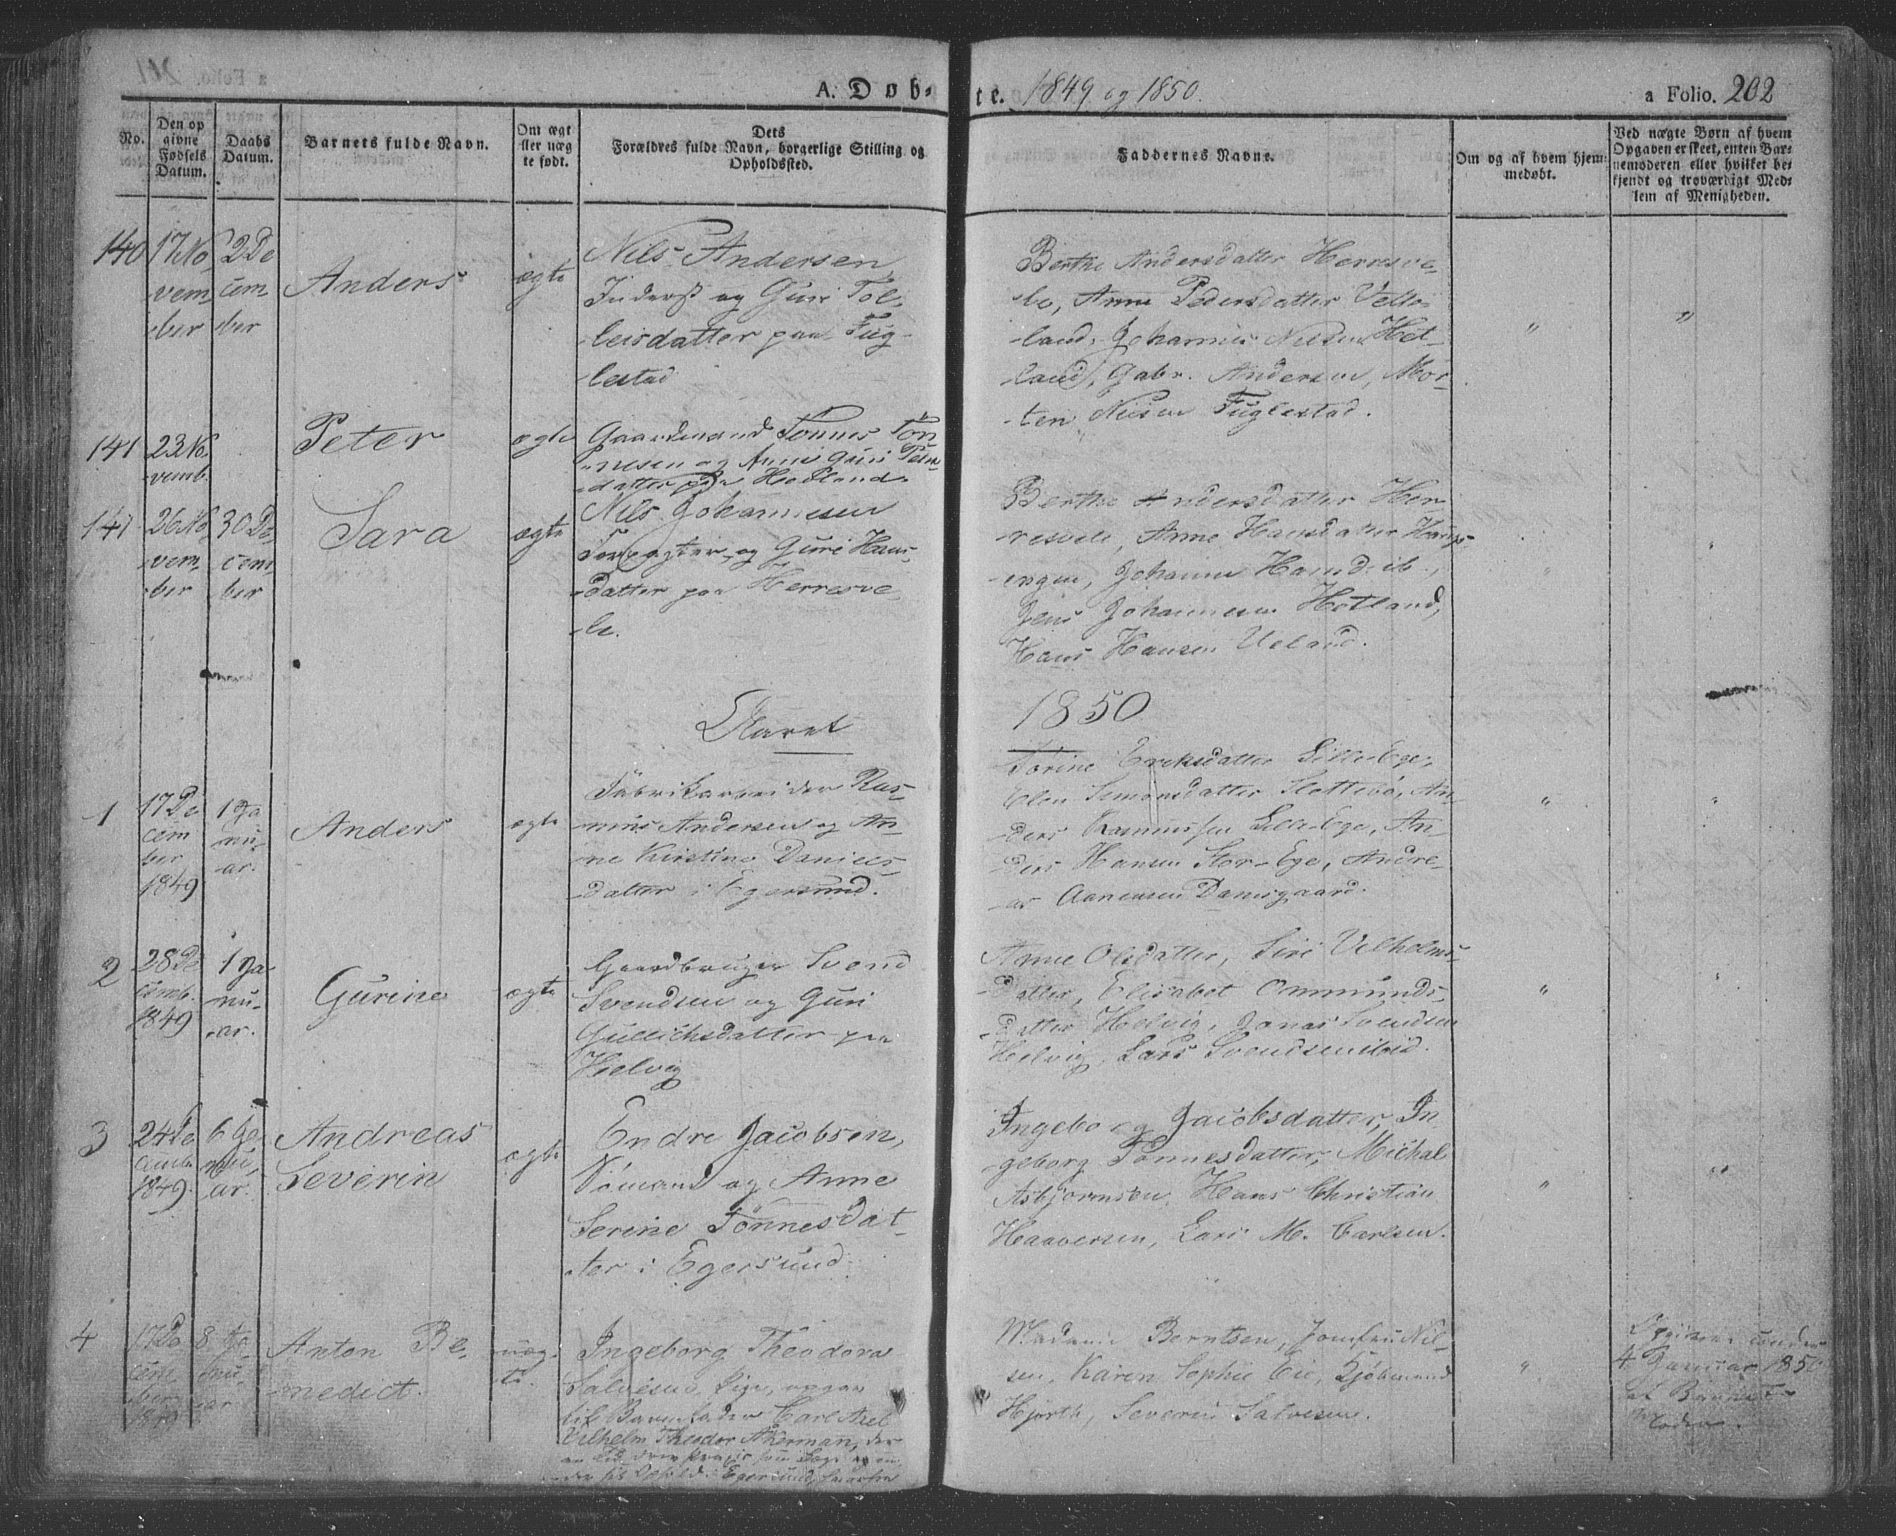 A. Døb-te. 1849 og 1850.
a Folio. 202
No.
Den op
givne
Fødsels
Datum.
Daabs
Datum.
Barnets fulde Navn.
Om ægt
ller uæg
te født.
Dets
Forældres fulde Navn, borgerlige Stilling og
Opholdssted.
Faddernes Navne.
Om og af hvem hjem-
medøbt.
Ved uægte Børn af hvem
Opgaven er skeet, enten Bar-
nemoderen eller hvilket be-
kjendt og troværdigt Med-
lem af Menigheden.
140
17 No
vem
ber
2 De
cem
ber
Anders
ægte
Nils Andersen
Inderst og Guri Tol-
leisdatter paa Fug-
lestad
Berthe Andersdatter Herresve-
le, Anne Pedersdatter
land, Johannes Nilsen Het-
land, Gabr. Andersen, Mor-
ten Nilsen Fuglestad.
"
"
141
23 No
vemb.
Peter
ægte
Gaardmand Tønnes Tøn
nesen og Anne Guri
datter paa
141
26 No
vem
ber
30 De
cem
ber
Sara
ægte
Nils Johannesen
Forpagter og Guri Hans-
datter paa Herresve-
le.
Berthe Andersdatter Her-
resvele, Anne Hansdatter
Johanne
Jens Johannesen Hetland,
Hans Hansen Ueland.
Aaret
1850
1
17 De
cem
ber
1849
1 Ja
nu-
ar.
Anders
ægte
Fabrikarbeider Ras-
mus Andersen og An-
ne Kirstine Daniels-
datter i Egersund.
Torine Eriksdatter Lille Ege,
Elen Simonsdatter Slettebø, An-
ders Rasmussen Lille Ege, An-
ders Hansen Stor-Ege, Andre-
as Aanensen Damsgaard.
"
"
2
28 De
cemb.
1849
1 Ja
nu-
ar.
Gurine
ægte
Gaardbruger Svend
Svendsen og Guri
Gullichsdatter paa
Helvig
Anne Olsdatter, Siri Velhelms-
datter, Elisabet Ommunds-
datter Helvig, Jonas Svendsen
Helvig, Lars Svendsen ibid.
"
"
3
24 De
cemb.
1849.
6 Ja
nu-
ar.
Andreas
Severin
ægte
Endre Jacobsen,
Sømand og Anne
Serine Tønnesdat-
ter i Egersund.
Ingeborg Jacobsdatter, In
geborg Tønnesdatter, Michal
Asbjørnsen, Hans Christian
Haaversen, Lars M. Carlsen.
"
"
4
17 De
cem
ber
1849
8 Ja
nu
ar
Anton Be-
nedict.
uæg-
te.
Ingeborg Theodora
Salvesen, Pige,
til Barnefader Carl Axel
Vilhelm Theodor Akerman, der
Egersund,
Madame Berntsen, Jomfru Nil-
sen, Karen Sophie Eie, Kjøbmand
Hjorth, Severin Salvesen.
"
4 Januar 1850
af Barnets